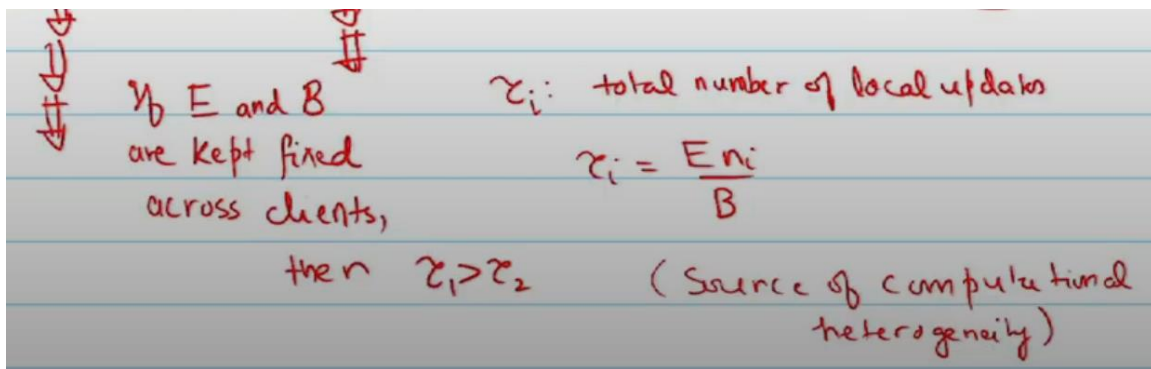 If E and B
are kept fixed
across clients,
then τ₁>τ₂
τᵢ: total number of local updates
τᵢ = E nᵢ / B
(Source of computational
heterogeneity)